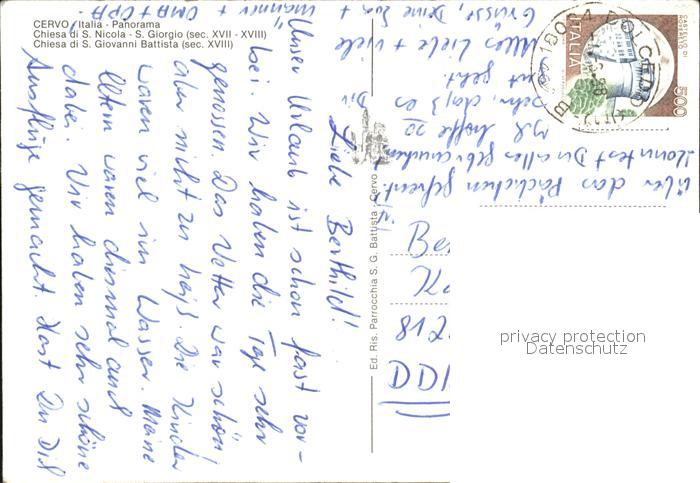 CERVO / Italia - Panorama
Chiesa di S. Nicola - S. Giorgio (sec. XVII - XVIII)
Chiesa di S. Giovanni Battista (sec. XVIII)
Liebe Berthild!
Unser Urlaub ist schon fast vor-
bei. Wir haben die Tage sehr
genossen. Das Wetter war schön,
aber nicht zu heiß. Die Kinder
waren viel im Wasser. Meine
Eltern waren diesmal auch
dabei. Wir haben sehr schöne
Ausflüge gemacht. Hast Du Dich
über das Päckchen gefreut.
Konntest Du alles gebrauchen
Ich hoffe
sehr, daß es
Dir gut geht.
Alles Liebe + viele
Grüsse, Deine +
Männer +
OMA + OPA
Ed. Ris. Parrocchia S. G. Battista - Cervo
ITALIA
500
18001
Be
K
812
DD
privacy protection
Datenschutz